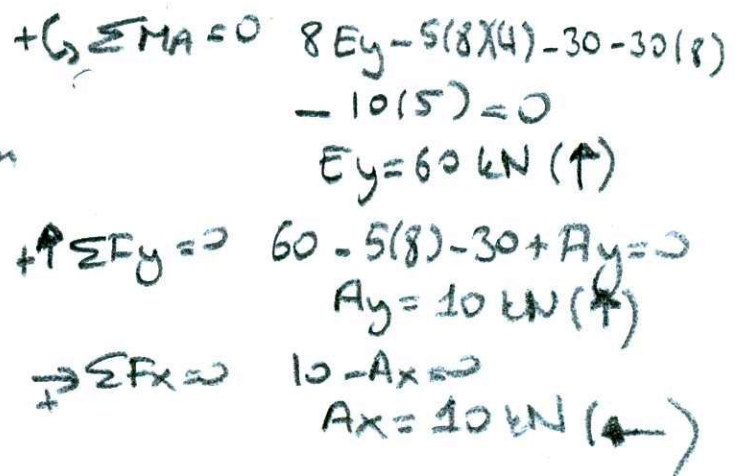 +↺ ΣMA=0 8Ey-5(8)(4)-30-30(8)
-10(5)=0
Ey=60 kN (↑)
+↑ΣFy=0 60-5(8)-30+Ay=0
Ay=10 kN(↑)
→+ ΣFx=0 10-Ax=0
Ax=10 kN (←)